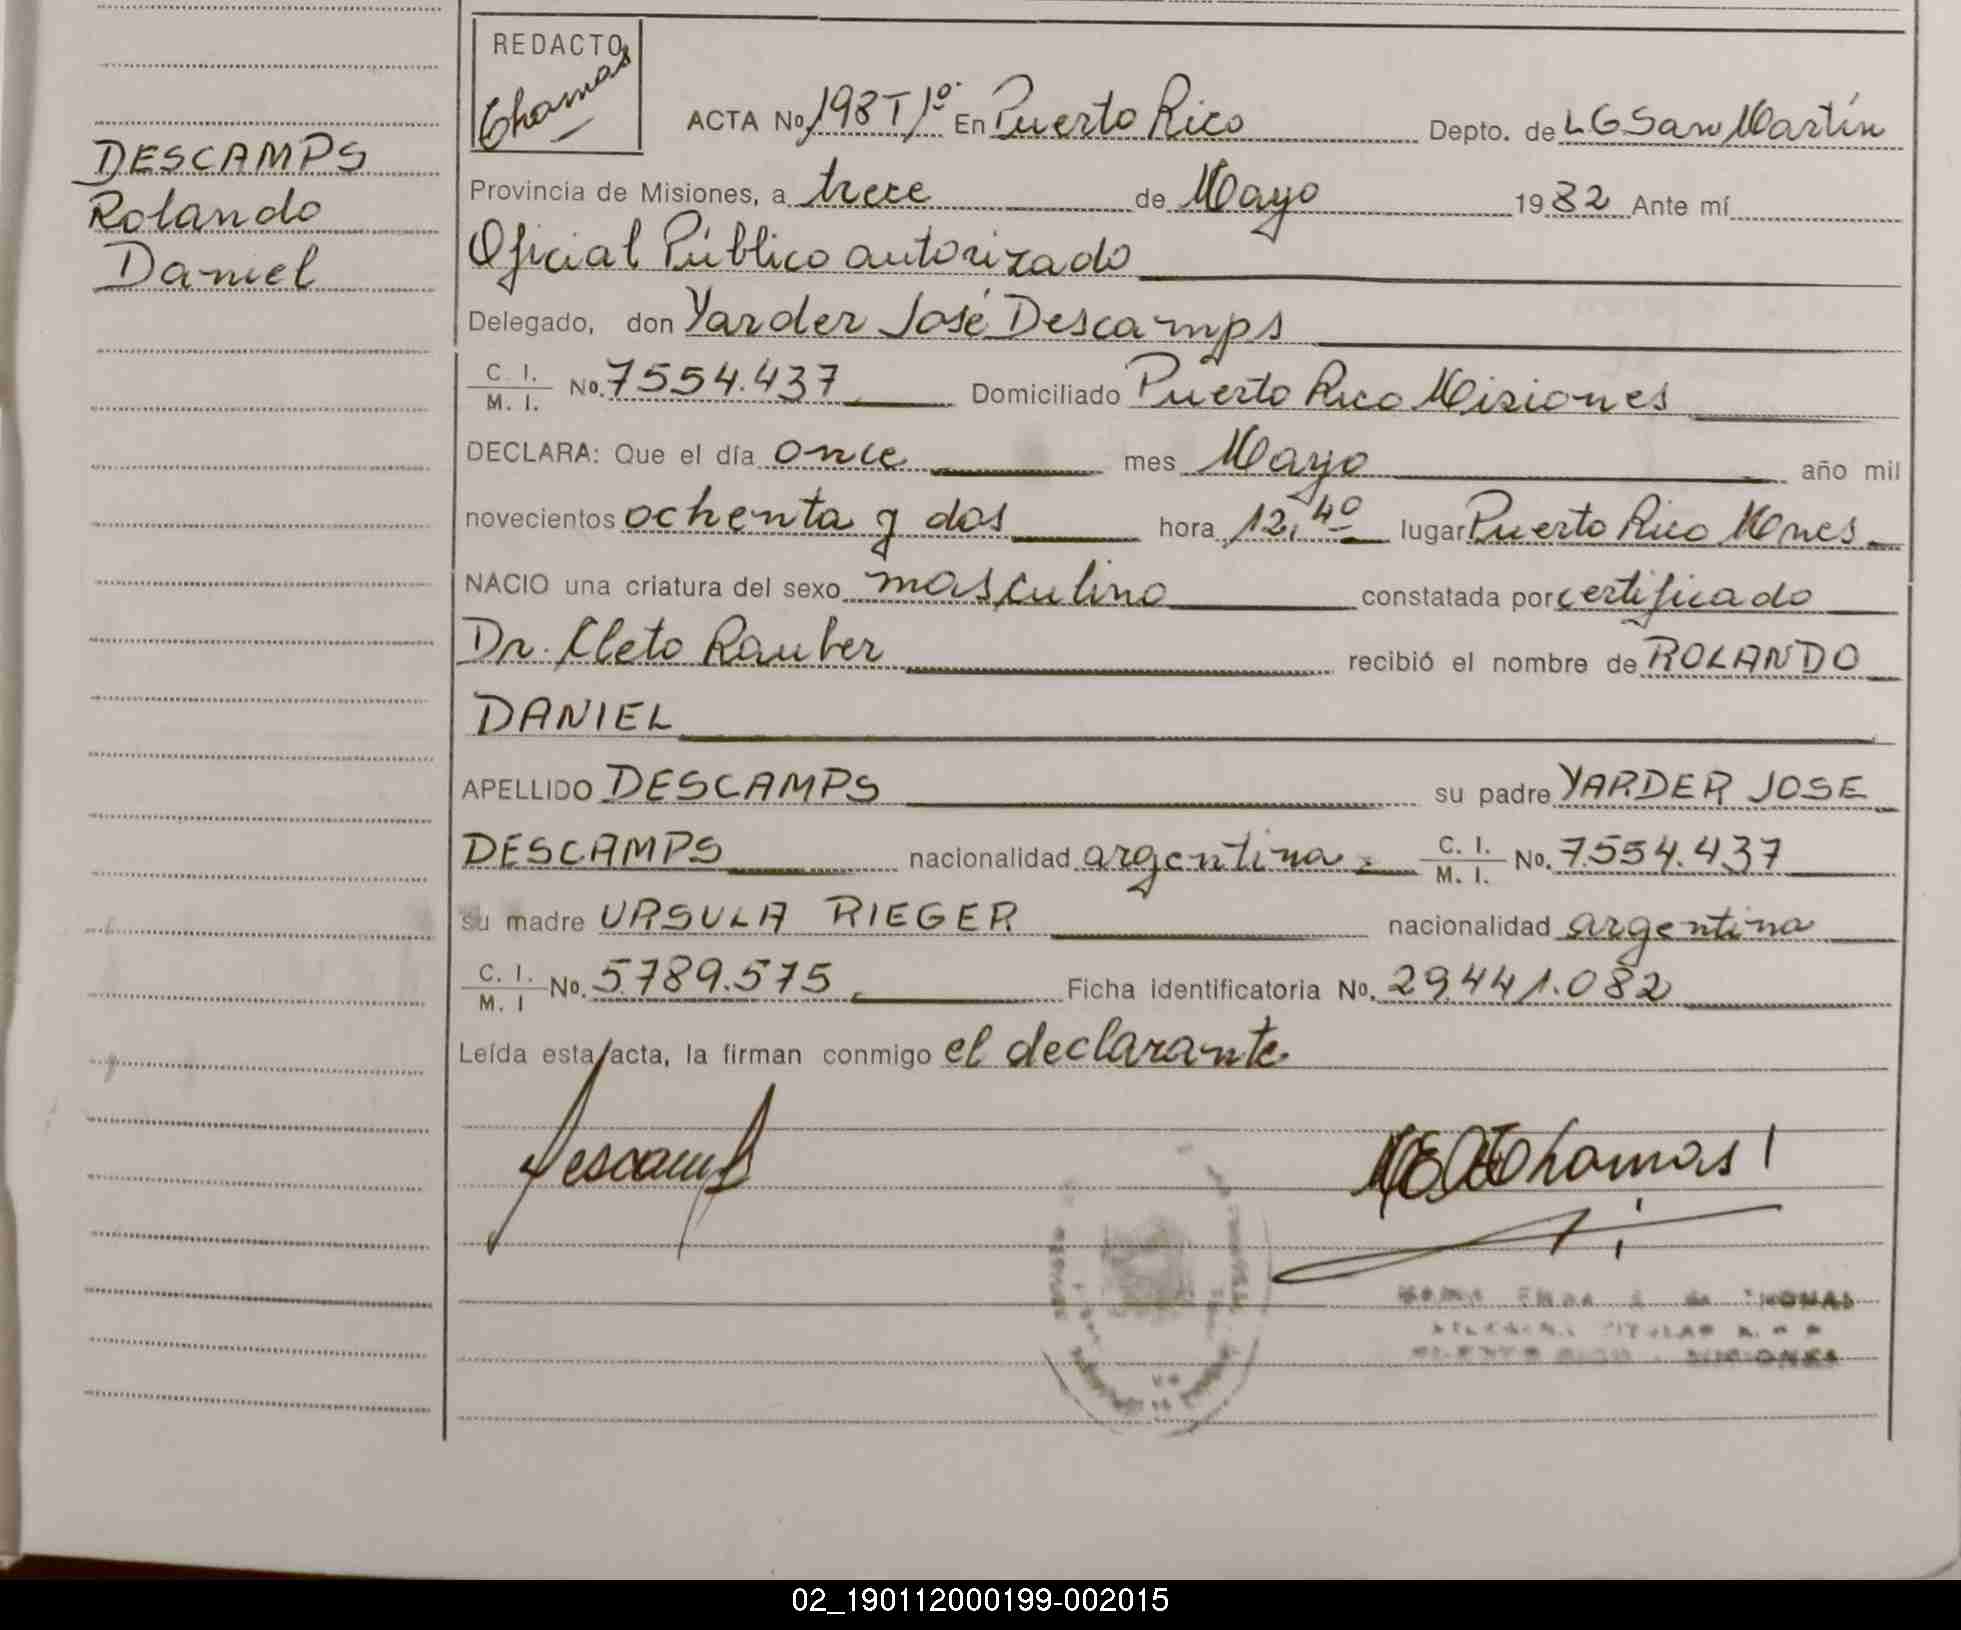 DESCAMPS
Rolando
Daniel
REDACTO
Thomas
ACTA No 198 T 1º En Puerto Rico Depto. de L G San Martín
Provincia de Misiones, a trece de Mayo 1982 Ante mí
Oficial Público autorizado
Delegado, don Yarder José Descamps
C. I. / M. I. No. 7554.437 Domiciliado Puerto Rico Misiones
DECLARA: Que el día once mes Mayo año mil
novecientos ochenta y dos hora 12,40 lugar Puerto Rico Mnes
NACIO una criatura del sexo masculino constatada por certificado
Dr. Cleto Rauber recibió el nombre de ROLANDO
DANIEL
APELLIDO DESCAMPS su padre YARDER JOSE
DESCAMPS nacionalidad argentina C. I. / M. I. No. 7.554.437
su madre URSULA RIEGER nacionalidad argentina
C. I. / M. I No. 5.789.575 Ficha identificatoria No. 29.441.082
Leída esta acta, la firman conmigo el declarante.
Descamps
Thomas
THOMAS
MISIONES
02_190112000199-002015